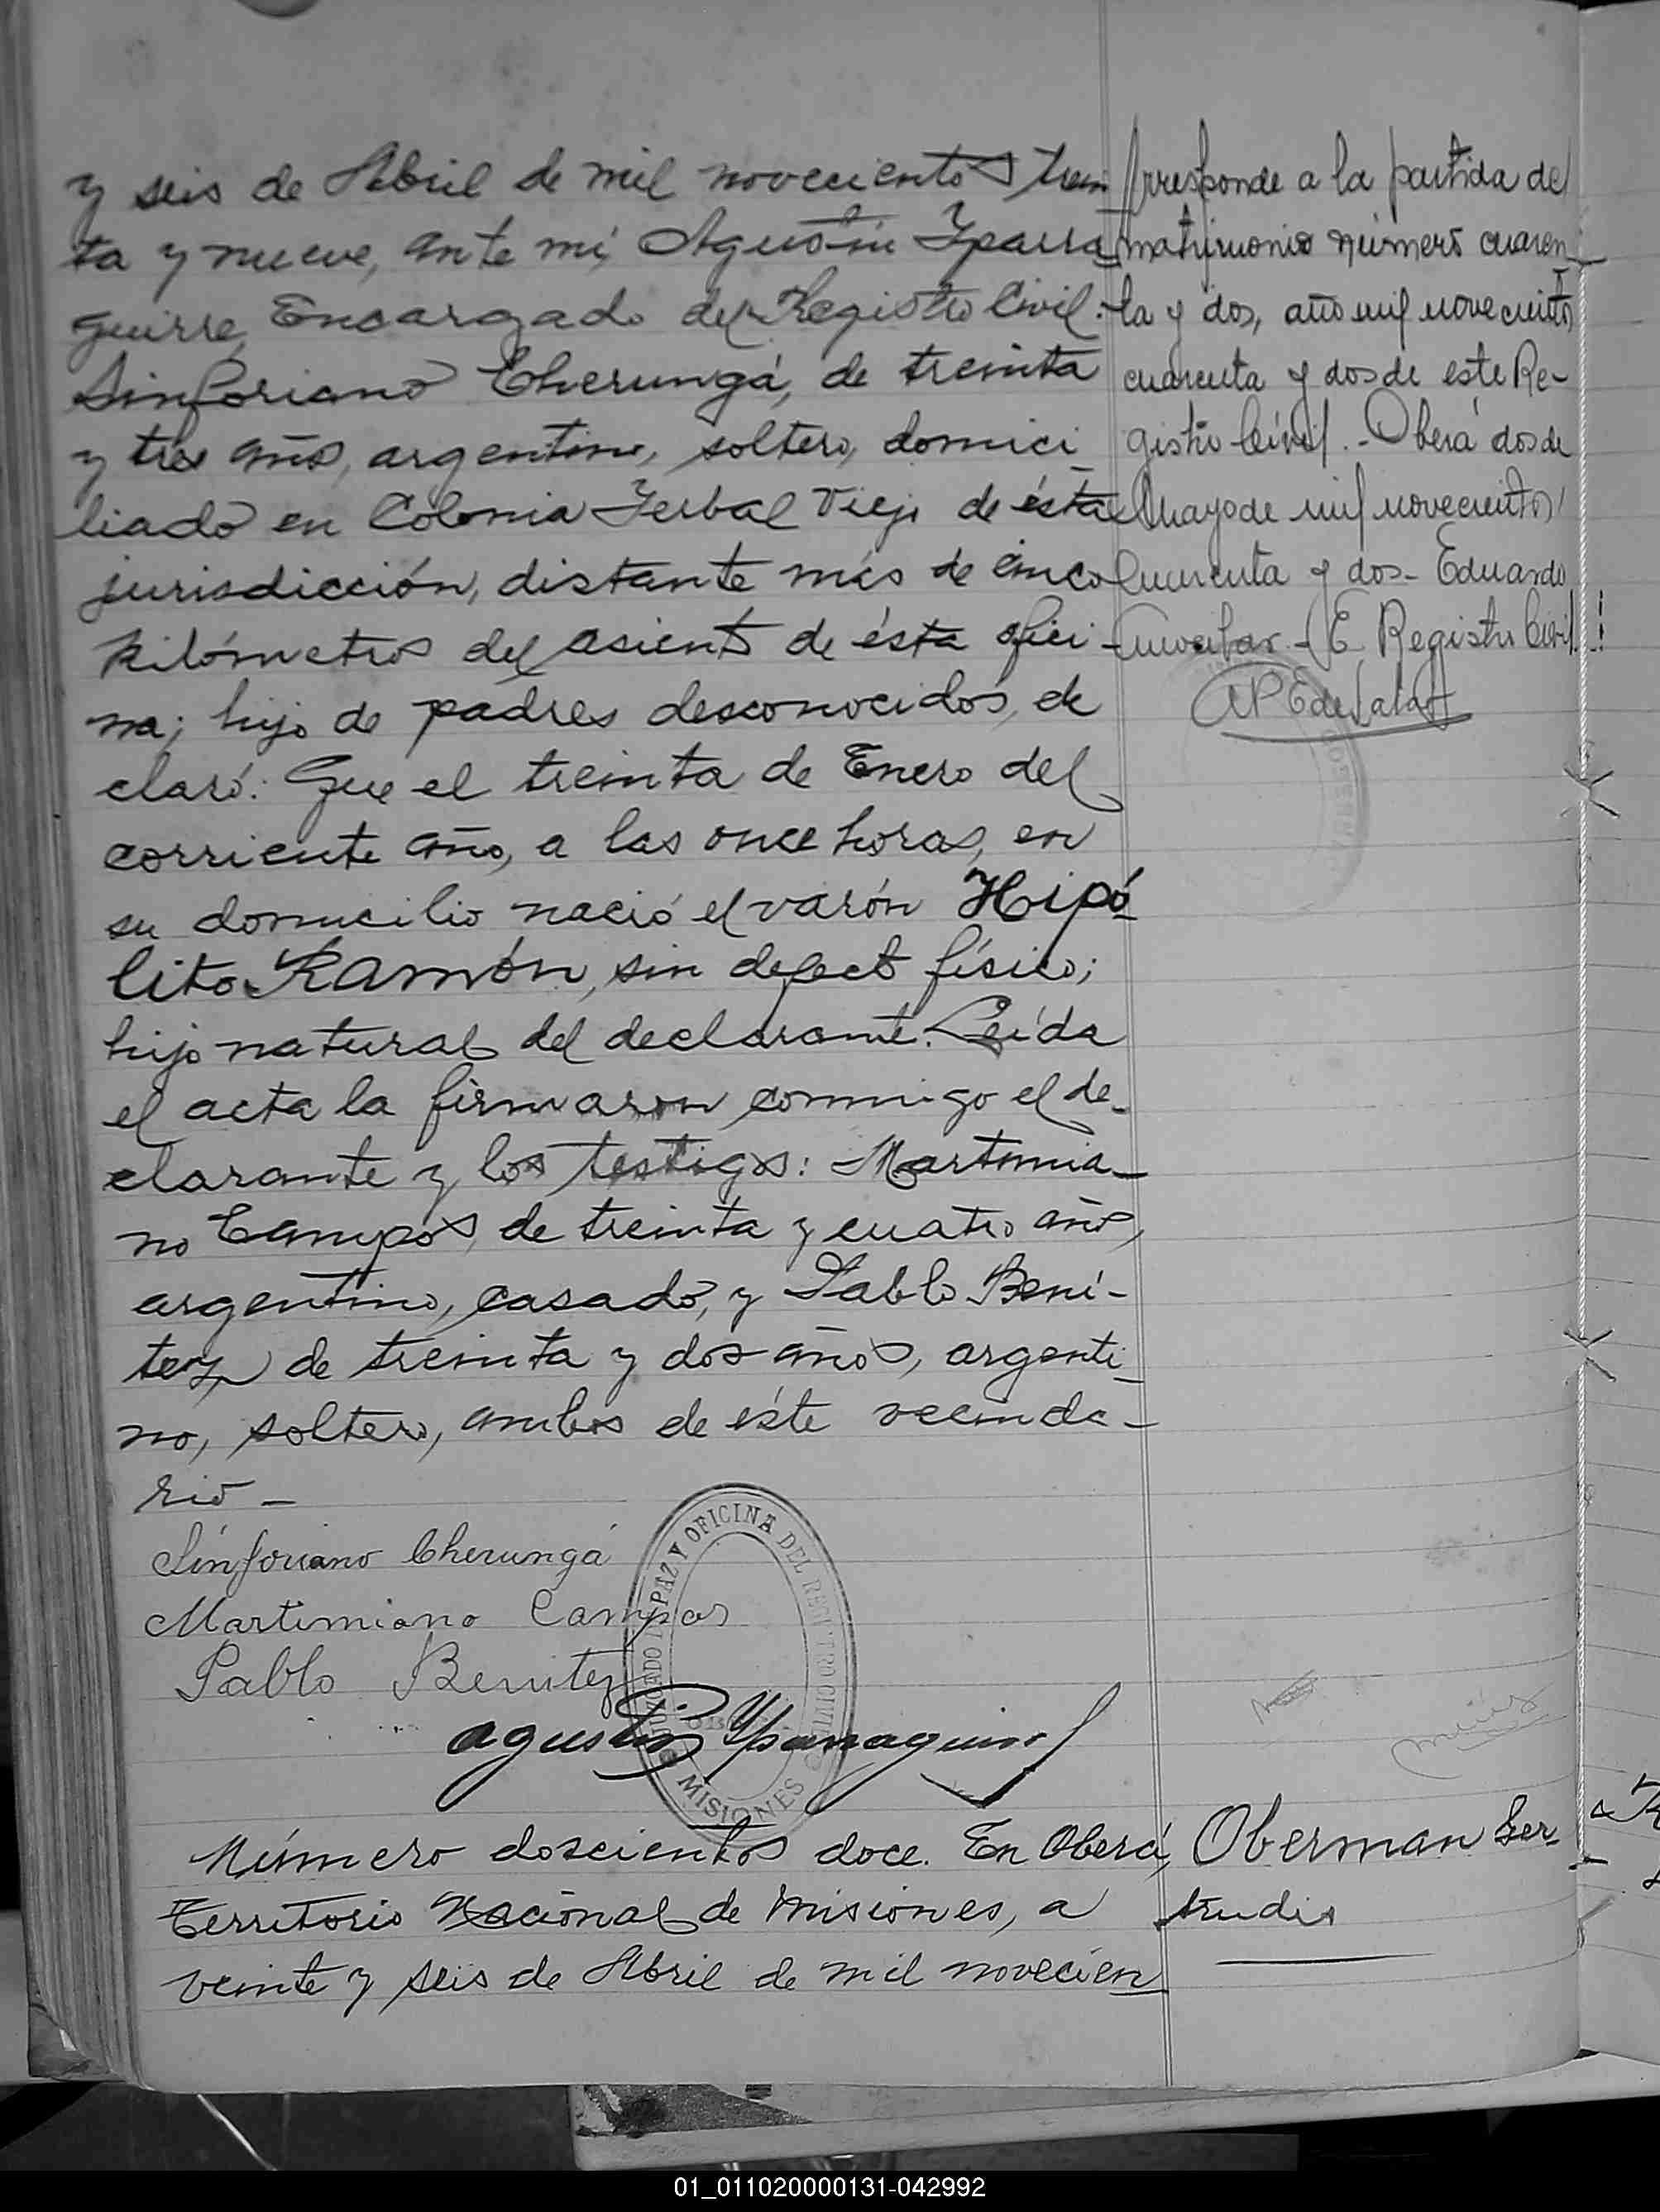 y seis de Abril de mil novecientos trein
ta y nueve, ante mí, Agustín Yparra
guirre, Encargado del Registro Civil.
Sinforiano Cherungá, de treinta
y tres años, argentino, soltero, domici
liado en Colonia Yerbal Viejo de ésta
jurisdicción, distante más de cinco
kilómetros del asiento de ésta ofici
na; hijo de padres desconocidos, de
claró: Que el treinta de Enero del
corriente año, a las once horas, en
su domicilio nació el varón Hipó
lito Ramón, sin defecto físico;
hijo natural del declarante. Leída
el acta la firmaron conmigo el de-
clarante y los testigos: Martimia-
no Campos, de treinta y cuatro años,
argentino, casado, y Pablo Bení-
tez, de treinta y dos años, argenti
no, soltero, ambos de éste vecinda-
rio -
rresponde a la partida de
matrimonio número cuaren
ta y dos, año mil novecientos
cuarenta y dos de este Re-
gistro Civil. - Oberá dos de
Mayo de mil novecientos
cuarenta y dos - Eduardo
E. Registro Civil.
Sinforiano Cherungá
Martimiano Campos
Pablo Benitez
Agustín Yparraguirre
JUZGADO DE PAZ Y OFICINA DEL REGISTRO CIVIL
MISIONES
Número doscientos doce. En Oberá,
Territorio Nacional de Misiones, a
veinte y seis de Abril de mil novecien
Oberman Ger-
trudis
01_011020000131-042992